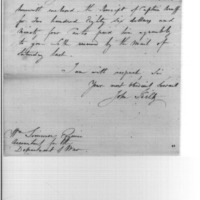 herewith enclosed the Receipt of Captain
for One hundred Eighty six dollars and
Ninety four Cents paid him agreeably
to you with seven by the mail of
Saturday last.
I am with respect, Sir
Your most obedient Servant
John
Wm Simmons Esquire
Accountant for the
Department of War